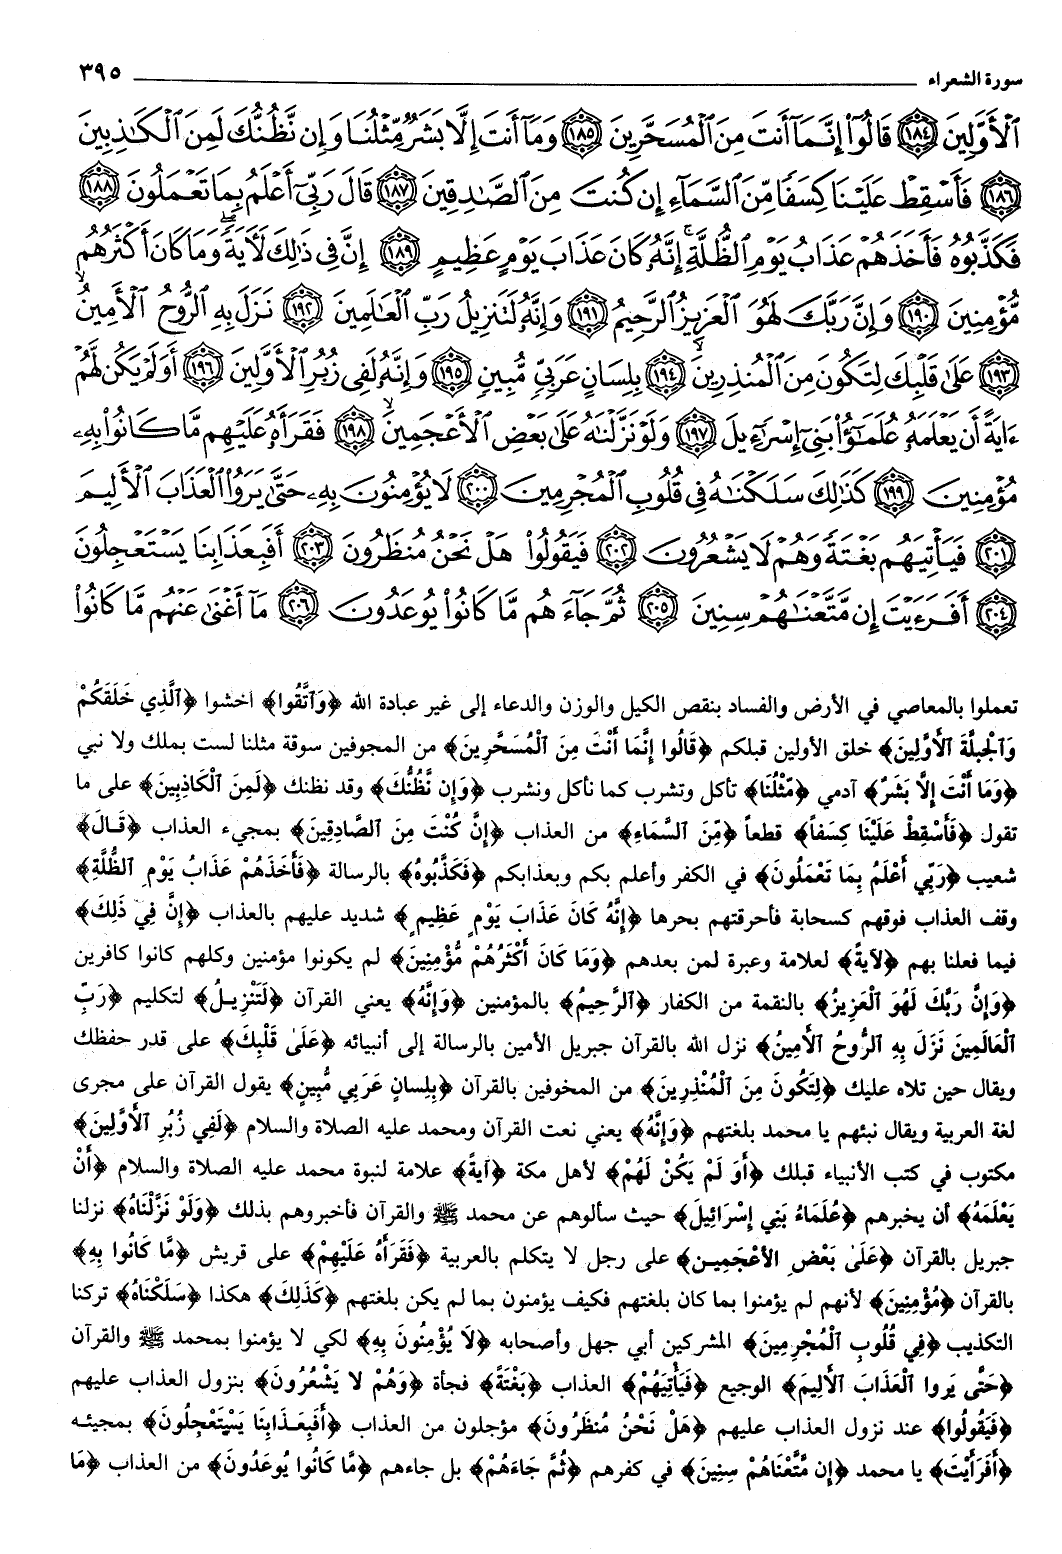 سورة الشعراء ٣٩٥
ٱلْأَوَّلِينَ ١٨٤ قَالُوٓا۟ إِنَّمَآ أَنتَ مِنَ ٱلْمُسَحَّرِينَ ١٨٥ وَمَآ أَنتَ إِلَّا بَشَرٌ مِّثْلُنَا وَإِن نَّظُنُّكَ لَمِنَ ٱلْكَـٰذِبِينَ
١٨٦ فَأَسْقِطْ عَلَيْنَا كِسَفًا مِّنَ ٱلسَّمَآءِ إِن كُنتَ مِنَ ٱلصَّـٰدِقِينَ ١٨٧ قَالَ رَبِّىٓ أَعْلَمُ بِمَا تَعْمَلُونَ ١٨٨
فَكَذَّبُوهُ فَأَخَذَهُمْ عَذَابُ يَوْمِ ٱلظُّلَّةِ ۚ إِنَّهُۥ كَانَ عَذَابَ يَوْمٍ عَظِيمٍ ١٨٩ إِنَّ فِى ذَٰلِكَ لَـَٔايَةً ۖ وَمَا كَانَ أَكْثَرُهُم
مُّؤْمِنِينَ ١٩٠ وَإِنَّ رَبَّكَ لَهُوَ ٱلْعَزِيزُ ٱلرَّحِيمُ ١٩١ وَإِنَّهُۥ لَتَنزِيلُ رَبِّ ٱلْعَـٰلَمِينَ ١٩٢ نَزَلَ بِهِ ٱلرُّوحُ ٱلْأَمِينُ
١٩٣ عَلَىٰ قَلْبِكَ لِتَكُونَ مِنَ ٱلْمُنذِرِينَ ١٩٤ بِلِسَانٍ عَرَبِىٍّ مُّبِينٍ ١٩٥ وَإِنَّهُۥ لَفِى زُبُرِ ٱلْأَوَّلِينَ ١٩٦ أَوَلَمْ يَكُن لَّهُمْ
ءَايَةً أَن يَعْلَمَهُۥ عُلَمَـٰٓؤُا۟ بَنِىٓ إِسْرَٰٓءِيلَ ١٩٧ وَلَوْ نَزَّلْنَـٰهُ عَلَىٰ بَعْضِ ٱلْأَعْجَمِينَ ١٩٨ فَقَرَأَهُۥ عَلَيْهِم مَّا كَانُوا۟ بِهِۦ
مُؤْمِنِينَ ١٩٩ كَذَٰلِكَ سَلَكْنَـٰهُ فِى قُلُوبِ ٱلْمُجْرِمِينَ ٢٠٠ لَا يُؤْمِنُونَ بِهِۦ حَتَّىٰ يَرَوُا۟ ٱلْعَذَابَ ٱلْأَلِيمَ
٢٠١ فَيَأْتِيَهُم بَغْتَةً وَهُمْ لَا يَشْعُرُونَ ٢٠٢ فَيَقُولُوا۟ هَلْ نَحْنُ مُنظَرُونَ ٢٠٣ أَفَبِعَذَابِنَا يَسْتَعْجِلُونَ
٢٠٤ أَفَرَءَيْتَ إِن مَّتَّعْنَـٰهُمْ سِنِينَ ٢٠٥ ثُمَّ جَآءَهُم مَّا كَانُوا۟ يُوعَدُونَ ٢٠٦ مَآ أَغْنَىٰ عَنْهُم مَّا كَانُوا۟
تعملوا بالمعاصي في الأرض والفساد بنقص الكيل والوزن والدعاء إلى غير عبادة الله ﴿وَٱتَّقُوا﴾ اخشوا ﴿ٱلَّذِي خَلَقَكُمْ
وَٱلْجِبِلَّةَ ٱلْأَوَّلِينَ﴾ خلق الأولين قبلكم ﴿قَالُوا إِنَّمَا أَنْتَ مِنَ ٱلْمُسَحَّرِينَ﴾ من المجوفين سوقة مثلنا لست بملك ولا نبي
﴿وَمَا أَنْتَ إِلَّا بَشَرٌ﴾ آدمي ﴿مِّثْلُنَا﴾ تأكل وتشرب كما نأكل ونشرب ﴿وَإِن نَّظُنُّكَ﴾ وقد نظنك ﴿لَمِنَ ٱلْكَاذِبِينَ﴾ على ما
تقول ﴿فَأَسْقِطْ عَلَيْنَا كِسَفاً﴾ قطعاً ﴿مِّنَ ٱلسَّمَاءِ﴾ من العذاب ﴿إِنَّ كُنْتَ مِنَ ٱلصَّادِقِينَ﴾ بمجيء العذاب ﴿قَـالَ﴾
شعيب ﴿رَبِّي أَعْلَمُ بِمَا تَعْمَلُونَ﴾ في الكفر وأعلم بكم وبعذابكم ﴿فَكَذَّبُوهُ﴾ بالرسالة ﴿فَأَخَذَهُمْ عَذَابُ يَوْمِ ٱلظُّلَّةِ﴾
وقف العذاب فوقهم كسحابة فأحرقتهم بحرها ﴿إِنَّهُ كَانَ عَذَابَ يَوْمٍ عَظِيمٍ﴾ شديد عليهم بالعذاب ﴿إِنَّ فِي ذَلِكَ﴾
فيما فعلنا بهم ﴿لَآيَةً﴾ لعلامة وعبرة لمن بعدهم ﴿وَمَا كَانَ أَكْثَرُهُمْ مُّؤْمِنِينَ﴾ لم يكونوا مؤمنين وكلهم كانوا كافرين
﴿وَإِنَّ رَبَّكَ لَهُوَ ٱلْعَزِيزُ﴾ بالنقمة من الكفار ﴿ٱلرَّحِيمُ﴾ بالمؤمنين ﴿وَإِنَّهُ﴾ يعني القرآن ﴿لَتَنْزِيـلُ﴾ لتكليم ﴿رَبِّ
ٱلْعَالَمِينَ نَزَلَ بِهِ ٱلرُّوحُ ٱلْأَمِينُ﴾ نزل الله بالقرآن جبريل الأمين بالرسالة إلى أنبيائه ﴿عَلَىٰ قَلْبِكَ﴾ على قدر حفظك
ويقال حين تلاه عليك ﴿لِتَكُونَ مِنَ ٱلْمُنْذِرِينَ﴾ من المخوفين بالقرآن ﴿بِلِسانٍ عَرَبِي مُّبِينٍ﴾ يقول القرآن على مجرى
لغة العربية ويقال نبئهم يا محمد بلغتهم ﴿وَإِنَّهُ﴾ يعني نعت القرآن ومحمد عليه الصلاة والسلام ﴿لَفِي زُبُرِ ٱلْأَوَّلِينَ﴾
مكتوب في كتب الأنبياء قبلك ﴿أَوَ لَمْ يَكُنْ لَهُمْ﴾ لأهل مكة ﴿آيَةً﴾ علامة لنبوة محمد عليه الصلاة والسلام ﴿أَنْ
يَعْلَمَهُ﴾ أن يخبرهم ﴿عُلَمَاءُ بَنِي إِسْرَائِيلَ﴾ حيث سألوهم عن محمد ﷺ والقرآن فأخبروهم بذلك ﴿وَلَوْ نَزَّلْنَاهُ﴾ نزلنا
جبريل بالقرآن ﴿عَلَىٰ بَعْضِ ٱلْأَعْجَمِيـنَ﴾ على رجل لا يتكلم بالعربية ﴿فَقَرَأَهُ عَلَيْهِمْ﴾ على قريش ﴿مَّا كَانُوا بِهِ﴾
بالقرآن ﴿مُؤْمِنِينَ﴾ لأنهم لم يؤمنوا بما كان بلغتهم فكيف يؤمنون بما لم يكن بلغتهم ﴿كَذَلِكَ﴾ هكذا ﴿سَلَكْنَاهُ﴾ تركنا
التكذيب ﴿فِي قُلُوبِ ٱلْمُجْرِمِينَ﴾ المشركين أبي جهل وأصحابه ﴿لَا يُؤْمِنُونَ بِهِ﴾ لكي لا يؤمنوا بمحمد ﷺ والقرآن
﴿حَتَّى يَروا ٱلْعَذَابَ ٱلْأَلِيمَ﴾ الوجيع ﴿فَيَأْتِيَهُمْ﴾ العذاب ﴿بَغْتَةً﴾ فجأة ﴿وَهُمْ لا يَشْعُرُونَ﴾ بنزول العذاب عليهم
﴿فَيَقُولُوا﴾ عند نزول العذاب عليهم ﴿هَلْ نَحْنُ مُنظَرُونَ﴾ مؤجلون من العذاب ﴿أَفَبِعَـذَابِنَا يَسْتَعْجِلُونَ﴾ بمجيئـه
﴿أَفَرَأَيْتَ﴾ يا محمد ﴿إِن مَّتَّعْنَاهُمْ سِنِينَ﴾ في كفرهم ﴿ثُمَّ جَاءَهُمْ﴾ بل جاءهم ﴿مَّا كَانُوا يُوعَدُونَ﴾ من العذاب ﴿مَا